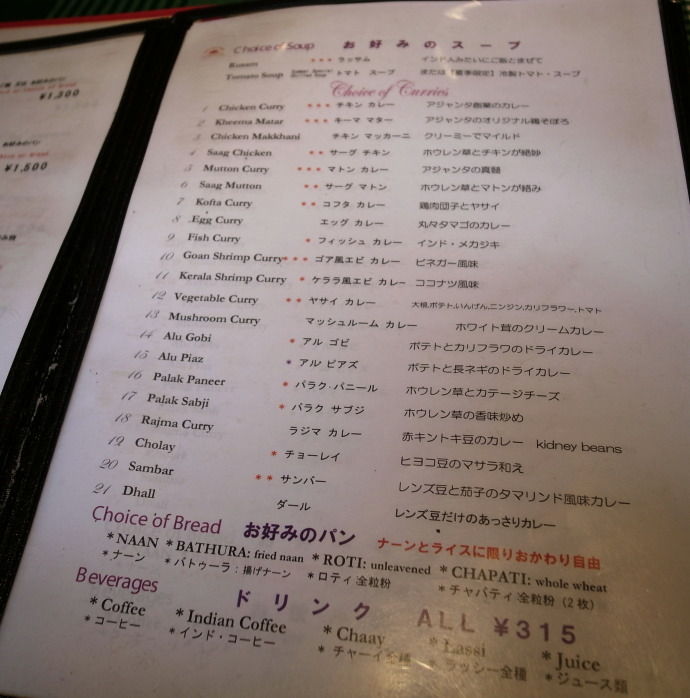 ¥1,300
お好みのパン
¥1,500
Choice of Soup お好みのスープ
Rusam *** ラッサム インド人みたいにご飯とまぜて
Tomato Soup トマト スープ または【夏季限定】冷製トマト・スープ
Choice of Curries
1 Chicken Curry *** チキン カレー アジャンタ創業のカレー
2 Kheema Matar *** キーマ マター アジャンタのオリジナル鶏そぼろ
3 Chicken Makkhani チキン マッカーニ クリーミーでマイルド
4 Saag Chicken ** サーグ チキン ホウレン草とチキンが絶妙
5 Mutton Curry *** マトン カレー アジャンタの真髄
6 Saag Mutton ** サーグ マトン ホウレン草とマトンが絡み
7 Kofta Curry ** コフタ カレー 鶏肉団子とヤサイ
8 Egg Curry エッグ カレー 丸々タマゴのカレー
9 Fish Curry * フィッシュ カレー インド・メカジキ
10 Goan Shrimp Curry *** ゴア風エビ カレー ビネガー風味
11 Kerala Shrimp Curry * ケララ風エビ カレー ココナツ風味
12 Vegetable Curry ** ヤサイ カレー 大根,ポテト,いんげん,ニンジン,カリフラワー,トマト
13 Mushroom Curry マッシュルーム カレー ホワイト茸のクリームカレー
14 Alu Gobi * アル ゴビ ポテトとカリフラワのドライカレー
15 Alu Piaz * アル ピアズ ポテトと長ネギのドライカレー
16 Palak Paneer * パラク・パニール ホウレン草とカテージチーズ
17 Palak Sabji * パラク サブジ ホウレン草の香味炒め
18 Rajma Curry ラジマ カレー 赤キントキ豆のカレー kidney beans
19 Cholay * チョーレイ ヒヨコ豆のマサラ和え
20 Sambar ** サンバー レンズ豆と茄子のタマリンド風味カレー
21 Dhall ダール レンズ豆だけのあっさりカレー
Choice of Bread お好みのパン ナーンとライスに限りおかわり自由
*NAAN *BATHURA: fried naan *ROTI: unleavened *CHAPATI: whole wheat
*ナーン *バトゥーラ:揚げナーン *ロティ 全粒粉 *チャパティ 全粒粉(2枚)
Beverages ドリンク ALL ¥315
*Coffee *Indian Coffee *Chaay *Lassi *Juice
*コーヒー *インド・コーヒー *チャーイ全種 *ラッシー全種 *ジュース類